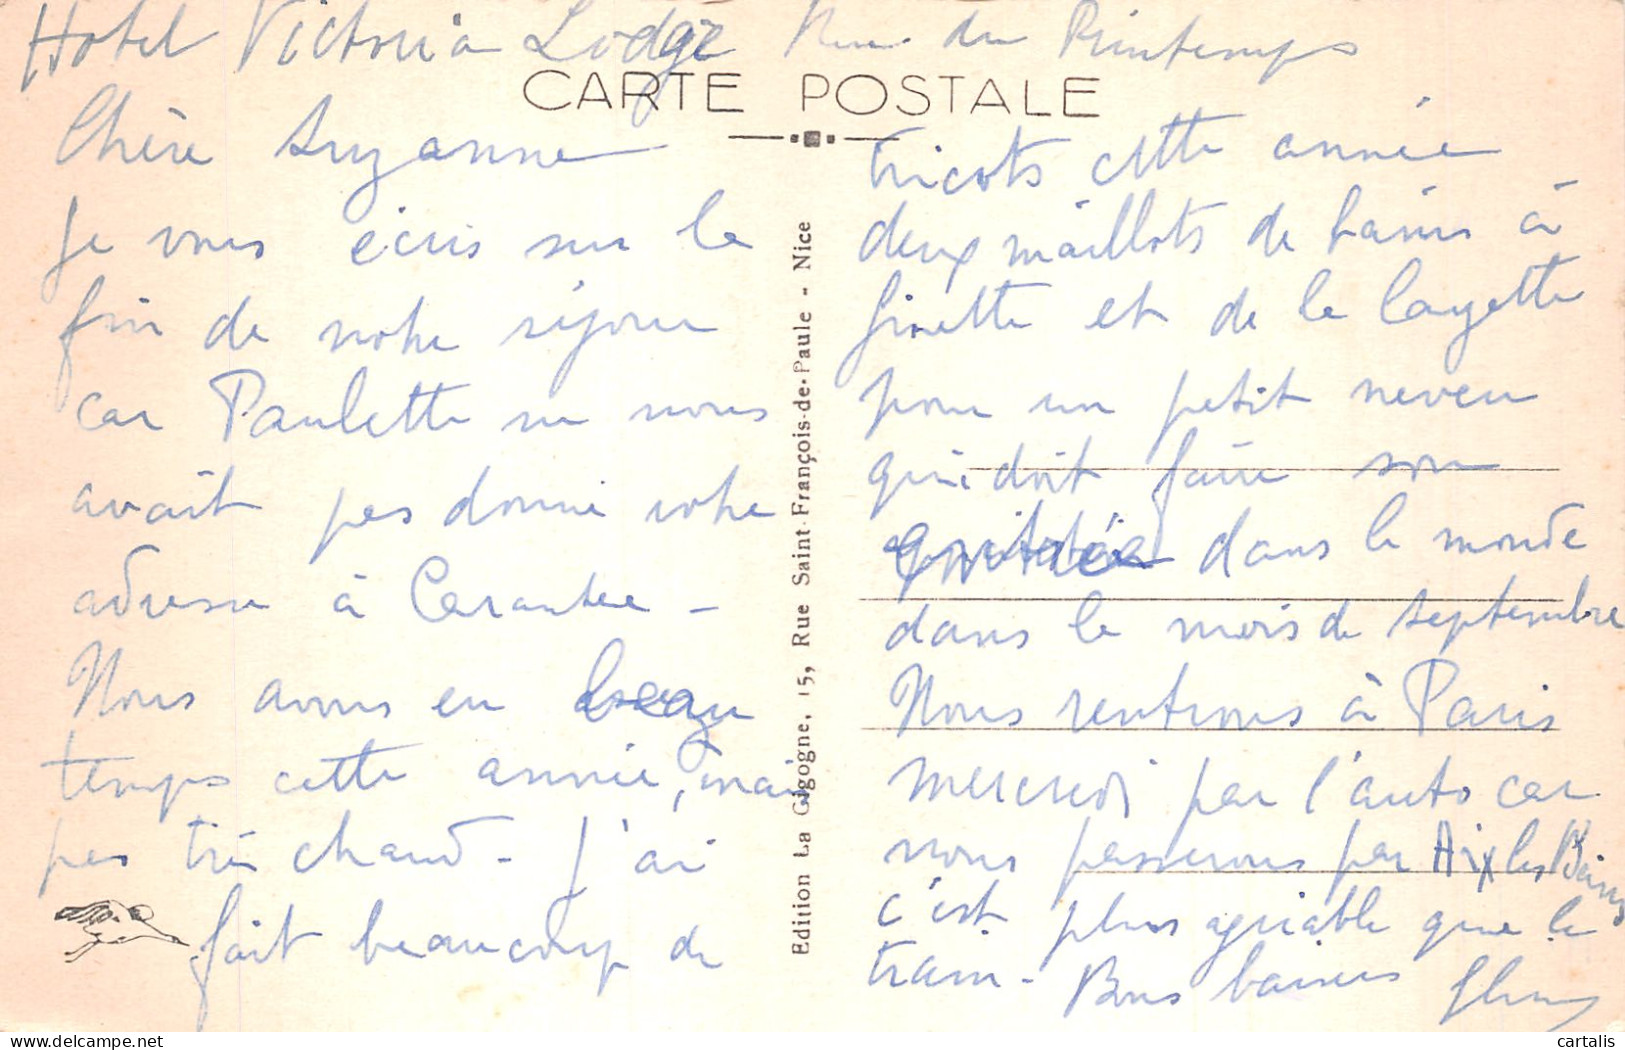 Hotel Victoria Lodge Rue du Printemps
CARTE POSTALE
Chère Suzanne
Je vous écris sur la
fin de notre séjour
car Paulette ne nous
avait pas donné votre
adresse à Carantec -
Nous avons eu beau
temps cette année, mais
pas très chaud - J'ai
fait beaucoup de
Edition La Gigogne, 15, Rue Saint-François-de-Paule - Nice
tricots cette année
deux maillots de bains à
Ginette et de la layette
pour un petit neveu
qui doit faire son
dans le monde
dans le mois de septembre
Nous rentrons à Paris
mercredi par l'auto car
nous passerons par Aix les Bains
c'est plus agréable que le
train - Bons baisers
cartalis.com